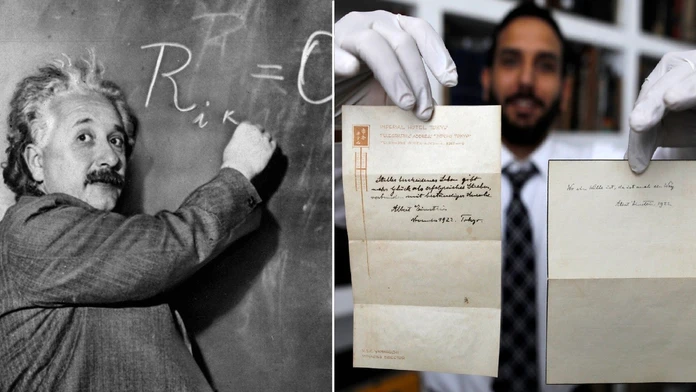 R i k = 0
IMPERIAL HOTEL TOKYO
Stilles bescheidenes Leben gibt
mehr Glück als erfolgreiches Streben,
verbunden mit beständiger Unruhe.
Albert Einstein
November 1922. Tokyo.
Wo ein Wille ist, da ist auch ein Weg
Albert Einstein. 1922.